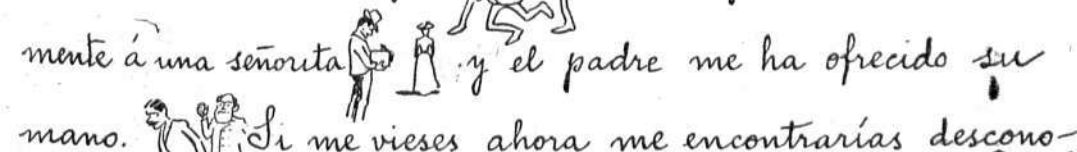 mente á una señorita y el padre me ha ofrecido su
mano. Si me vieses ahora me encontrarías descono-